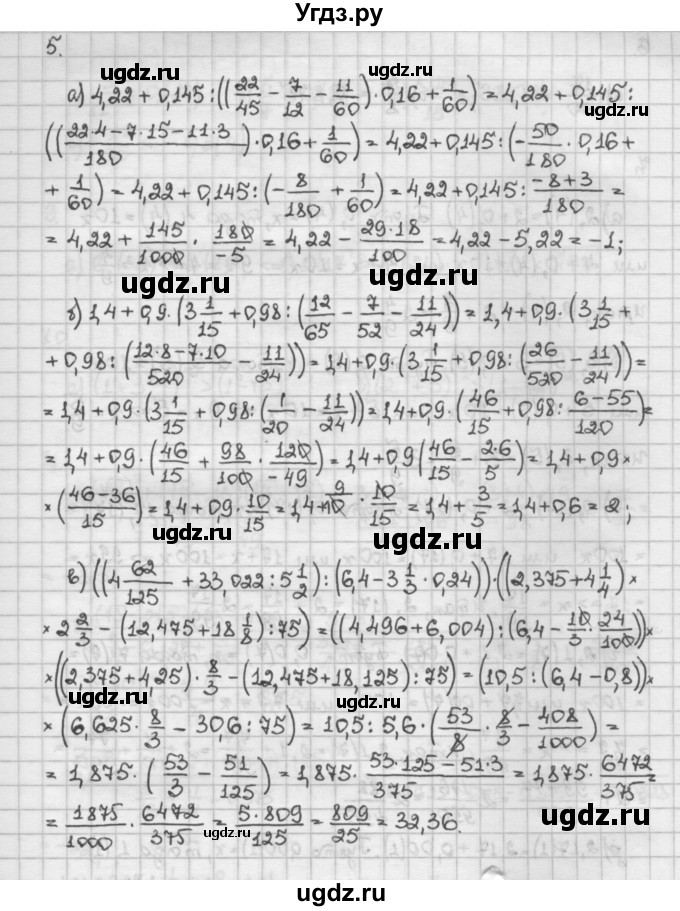 Угдз.ру
5.
ugdz.ru ugdz.ru
а) 4,22 + 0,145 : ((22/45 − 7/12 − 11/60) · 0,16 + 1/60) = 4,22 + 0,145 :
((22·4 − 7·15 − 11·3)/180) · 0,16 + 1/60) = 4,22 + 0,145 : (− 50/180 · 0,16 +
ugdz.ru ugdz.ru
+ 1/60) = 4,22 + 0,145 : (− 8/180 + 1/60) = 4,22 + 0,145 : (−8+3)/180 =
= 4,22 + 145/1000 · 180/−5 = 4,22 − 29·18/100 = 4,22 − 5,22 = −1;
ugdz.ru ugdz.ru
б) 1,4 + 0,9 · (3 1/15 + 0,98 : (12/65 − 7/52 − 11/24)) = 1,4 + 0,9 · (3 1/15 +
ugdz.ru
+ 0,98 : ((12·8 − 7·10)/520 − 11/24)) = 1,4 + 0,9 · (3 1/15 + 0,98 : (26/520 − 11/24)) =
= 1,4 + 0,9 · (3 1/15 + 0,98 : (1/20 − 11/24)) = 1,4 + 0,9 · (46/15 + 0,98 : (6−55)/120) =
ugdz.ru ugdz.ru
= 1,4 + 0,9 · (46/15 + 98/100 · 120/−49) = 1,4 + 0,9 (46/15 − 2·6/5) = 1,4 + 0,9 ×
× ((46−36)/15) = 1,4 + 0,9 · 10/15 = 1,4 + 9/10 · 10/15 = 1,4 + 3/5 = 1,4 + 0,6 = 2;
ugdz.ru ugdz.ru
в) ((4 62/125 + 33,022 : 5 1/2) : (6,4 − 3 1/3 · 0,24)) · ((2,375 + 4 1/4) ×
ugdz.ru ugdz.ru
× 2 2/3 − (12,475 + 18 1/8) : 75) = ((4,496 + 6,004) : (6,4 − 10/3 · 24/100)) ×
× ((2,375 + 4,25) · 8/3 − (12,475 + 18,125) : 75) = (10,5 : (6,4 − 0,8)) ×
ugdz.ru ugdz.ru
× (6,625 · 8/3 − 30,6 : 75) = 10,5 : 5,6 · (53/8 · 8/3 − 408/1000) =
ugdz.ru
= 1,875 · (53/3 − 51/125) = 1,875 · (53·125 − 51·3)/375 = 1,875 · 6472/375 =
ugdz.ru ugdz.ru
= 1875/1000 · 6472/375 = 5·809/125 = 809/25 = 32,36.
ugdz.ru ugdz.ru
ugdz.ru